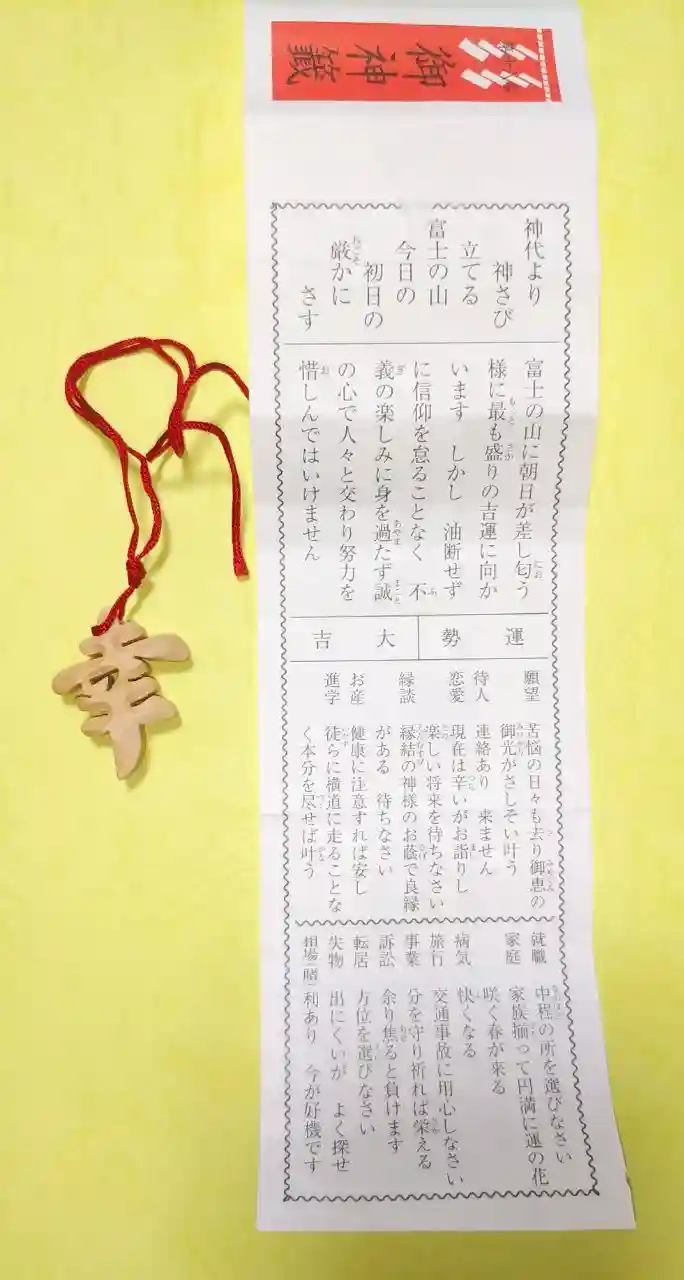 御神籤
神代より
神さび
立てる
富士の山
今日の
初日の
厳かに
さす
富士の山に朝日が差し匂う
様に最も盛りの吉運に向か
います しかし 油断せず
に信仰を怠ることなく 不
義の楽しみに身を過たず誠
の心で人々と交わり努力を
惜しんではいけません
運勢 大吉
願望 苦悩の日々も去り御恵の
御光がさしそい叶う
待人 連絡あり 来ません
恋愛 現在は辛いがお詣りし
楽しい将来を待ちなさい
縁談 縁結の神様のお蔭で良縁
がある 待ちなさい
お産 健康に注意すれば安し
進学 徒らに横道に走ることな
く本分を尽せば叶う
就職 中程の所を選びなさい
家庭 家族揃って円満に運の花
咲く春が来る
病気 快くなる
旅行 交通事故に用心しなさい
事業 分を守り祈れば栄える
訴訟 余り焦ると負けます
転居 方位を選びなさい
失物 出にくいが よく探せ
相場(賭) 利あり 今が好機です
幸